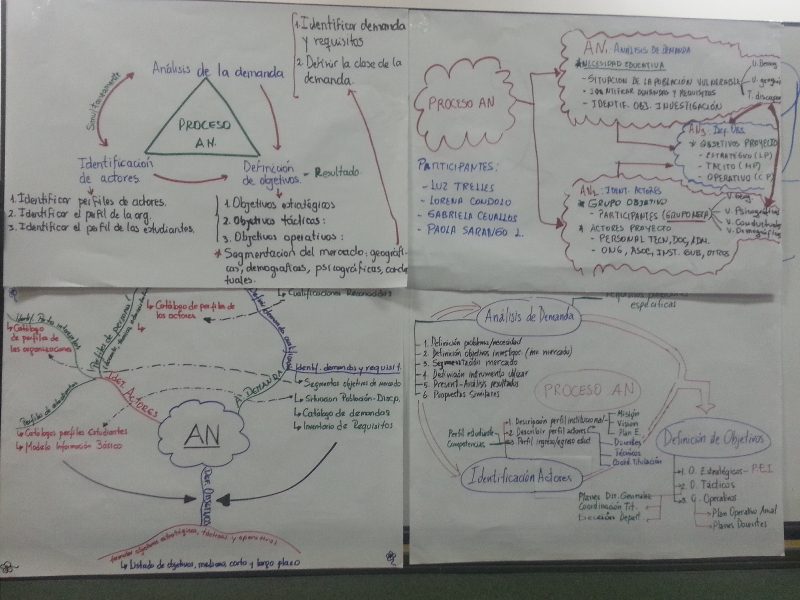 1. Identificar demanda
y requisitos
2. Definir la clase de la
demanda.
Análisis de la demanda
Simultáneamente
PROCESO
AN.
Identificación
de actores.
Definición
de objetivos.
- Resultado.
1. Identificar perfiles de actores.
2. Identificar el perfil de la org.
3. Identificar el perfil de los estudiantes.
1. Objetivos estratégicos
2. Objetivos tácticos:
3. Objetivos operativos:
* Segmentación del mercado; geográfi-
cas, demográficas, psicográficas, conduc-
tuales.
PROCESO AN
PARTICIPANTES:
- LUZ TRELLES
- LORENA CONDOLO
- GABRIELA CEVALLOS
- PAOLA SARANGO L.
AN1: ANÁLISIS DE DEMANDA
NECESIDAD EDUCATIVA
- SITUACION DE LA POBLACIÓN VULNERABLE
- IDENTIFICAR DEMANDAS Y REQUISITOS
- IDENTIF. OBJ. INVESTIGACIÓN
V. Demog
V. geográf
T. discapac
AN3: Def. Obj.
* OBJETIVOS PROYECTO
- ESTRATEGICO (LP)
- TACITO (MP)
- OPERATIVO (CP)
AN2: IDENT. ACTORES
* GRUPO OBJETIVO
- PARTICIPANTES (GRUPO META)
* ACTORES PROYECTO
- PERSONAL TECN, DOC, ADM.
- ONG, ASOC, INST. GUB, OTROS
V. Geog.
V. Psicográfica
V. Conductual
V. Demográfica
Cualificaciones Reconocidas
Catálogo de perfiles de
los actores
Catálogo
de perfiles de
las organizaciones
Perfiles de estudiantes
IDENT. ACTORES
Catálogos perfiles Estudiantes
Modelo Información Básico
A. DEMANDA
Identif. demandas y requisit.
Segmentos objetivos de mercado
Situacion Población - Discp.
Catálogo de demandas
Inventario de Requisitos
AN
Def. Objetivos
formular objetivos estratégicos, tácticos y operativos
Listado de objetivos, mediano, corto y largo plazo
específicas
Análisis de Demanda
1. Definición problema/necesidad
2. Definición objetivos investigac (inv mercado)
3. Segmentación mercado
4. Definición instrumento utilizar
5. Present - Análisis resultados
6. Propuestas Similares
PROCESO AN
Perfil estudiante
Competencias
1. Descripción perfil institucional
2. Describir perfil actores
3. Perfil ingreso/egreso estud
Misión
Visión
Plan E.
Docentes
Técnicos
Coord. Titulación
Identificación Actores
Definición de Objetivos
1. O. Estratégicos - P.E.I
2. O. Tácticos
3. O. Operativos
Planes Dir. Generales
Coordinación Tit.
Dirección Depart.
Plan Operativo Anual
Planes Docentes